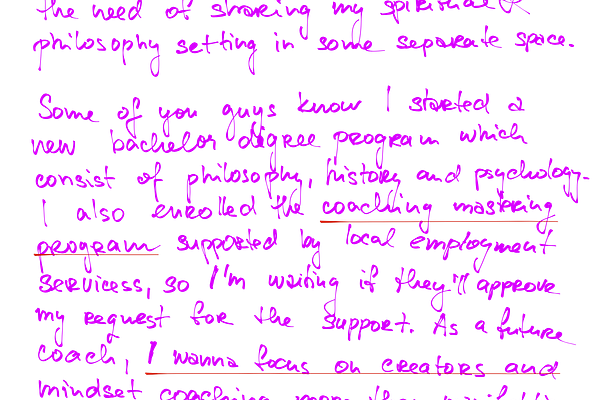 the need of sharing my spiritual &
philosophy setting in some separate space.
Some of you guys know I started a
new bachelor digree program which
consist of philosophy, history and psychology.
I also enrolled the coaching mastering
program supported by local employment
servicess, so I'm waiting if they'll approve
my request for the support. As a future
coach, I wanna focus on creators and
mindset coaching more than